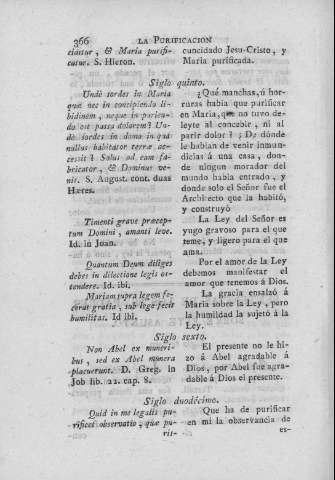 366 LA PURIFICACION
ciatur, & Maria purifi-
catur. S. Hieron.
cuncidado Jesu-Cristo, y
Maria purificada.
Siglo quinto.
Undè sordes in Maria
quæ nec in concipiendo li-
bidinem, neque in parien-
do est passa dolorem? Un-
dè sordes in domo in qua
nullus habitator terræ ac-
cessit? Solus ad eam fa-
bricator, & Dominus ve-
nit. S. August. cont. duas
Hæres.
¿Qué manchas, ú hor-
ruras habia que purificar
en Maria, que no tuvo de-
leyte al concebir, ni al
parir dolor? ¿De dónde
le habian de venir inmun-
dicias á una casa, don-
de ningun morador del
mundo habia entrado, y
donde solo el Señor fue el
Architecto que la habitó,
y construyó
Timenti grave præcep-
tum Domini, amanti leve.
Id. in Juan.
La Ley del Señor es
yugo gravoso para el que
teme, y ligero para el que
ama.
Quantum Deum diliges
debes in dilectione legis os-
tendere. Id. ibi.
Por el amor de la Ley
debemos manifestar el
amor que tenemos á Dios.
Mariam supra legem fe-
cerat gratia, sub lege fecit
humilitas. Id ibi.
La gracia ensalzó á
Maria sobre la Ley, pero
la humildad la sujetó á la
Ley.
Siglo sexto.
Non Abel ex muneri-
bus, sed ex Abel munera
placuerunt. D. Greg. in
Job lib. 22. cap. 8.
El presente no le hi-
zo á Abel agradable á
Dios, por Abel fue agra-
dable á Dios el presente.
Siglo duodécimo.
Quid in me legalis pu-
rificet observatio, quæ pu-
ris-
Que ha de purificar
en mi la observancia de
es-